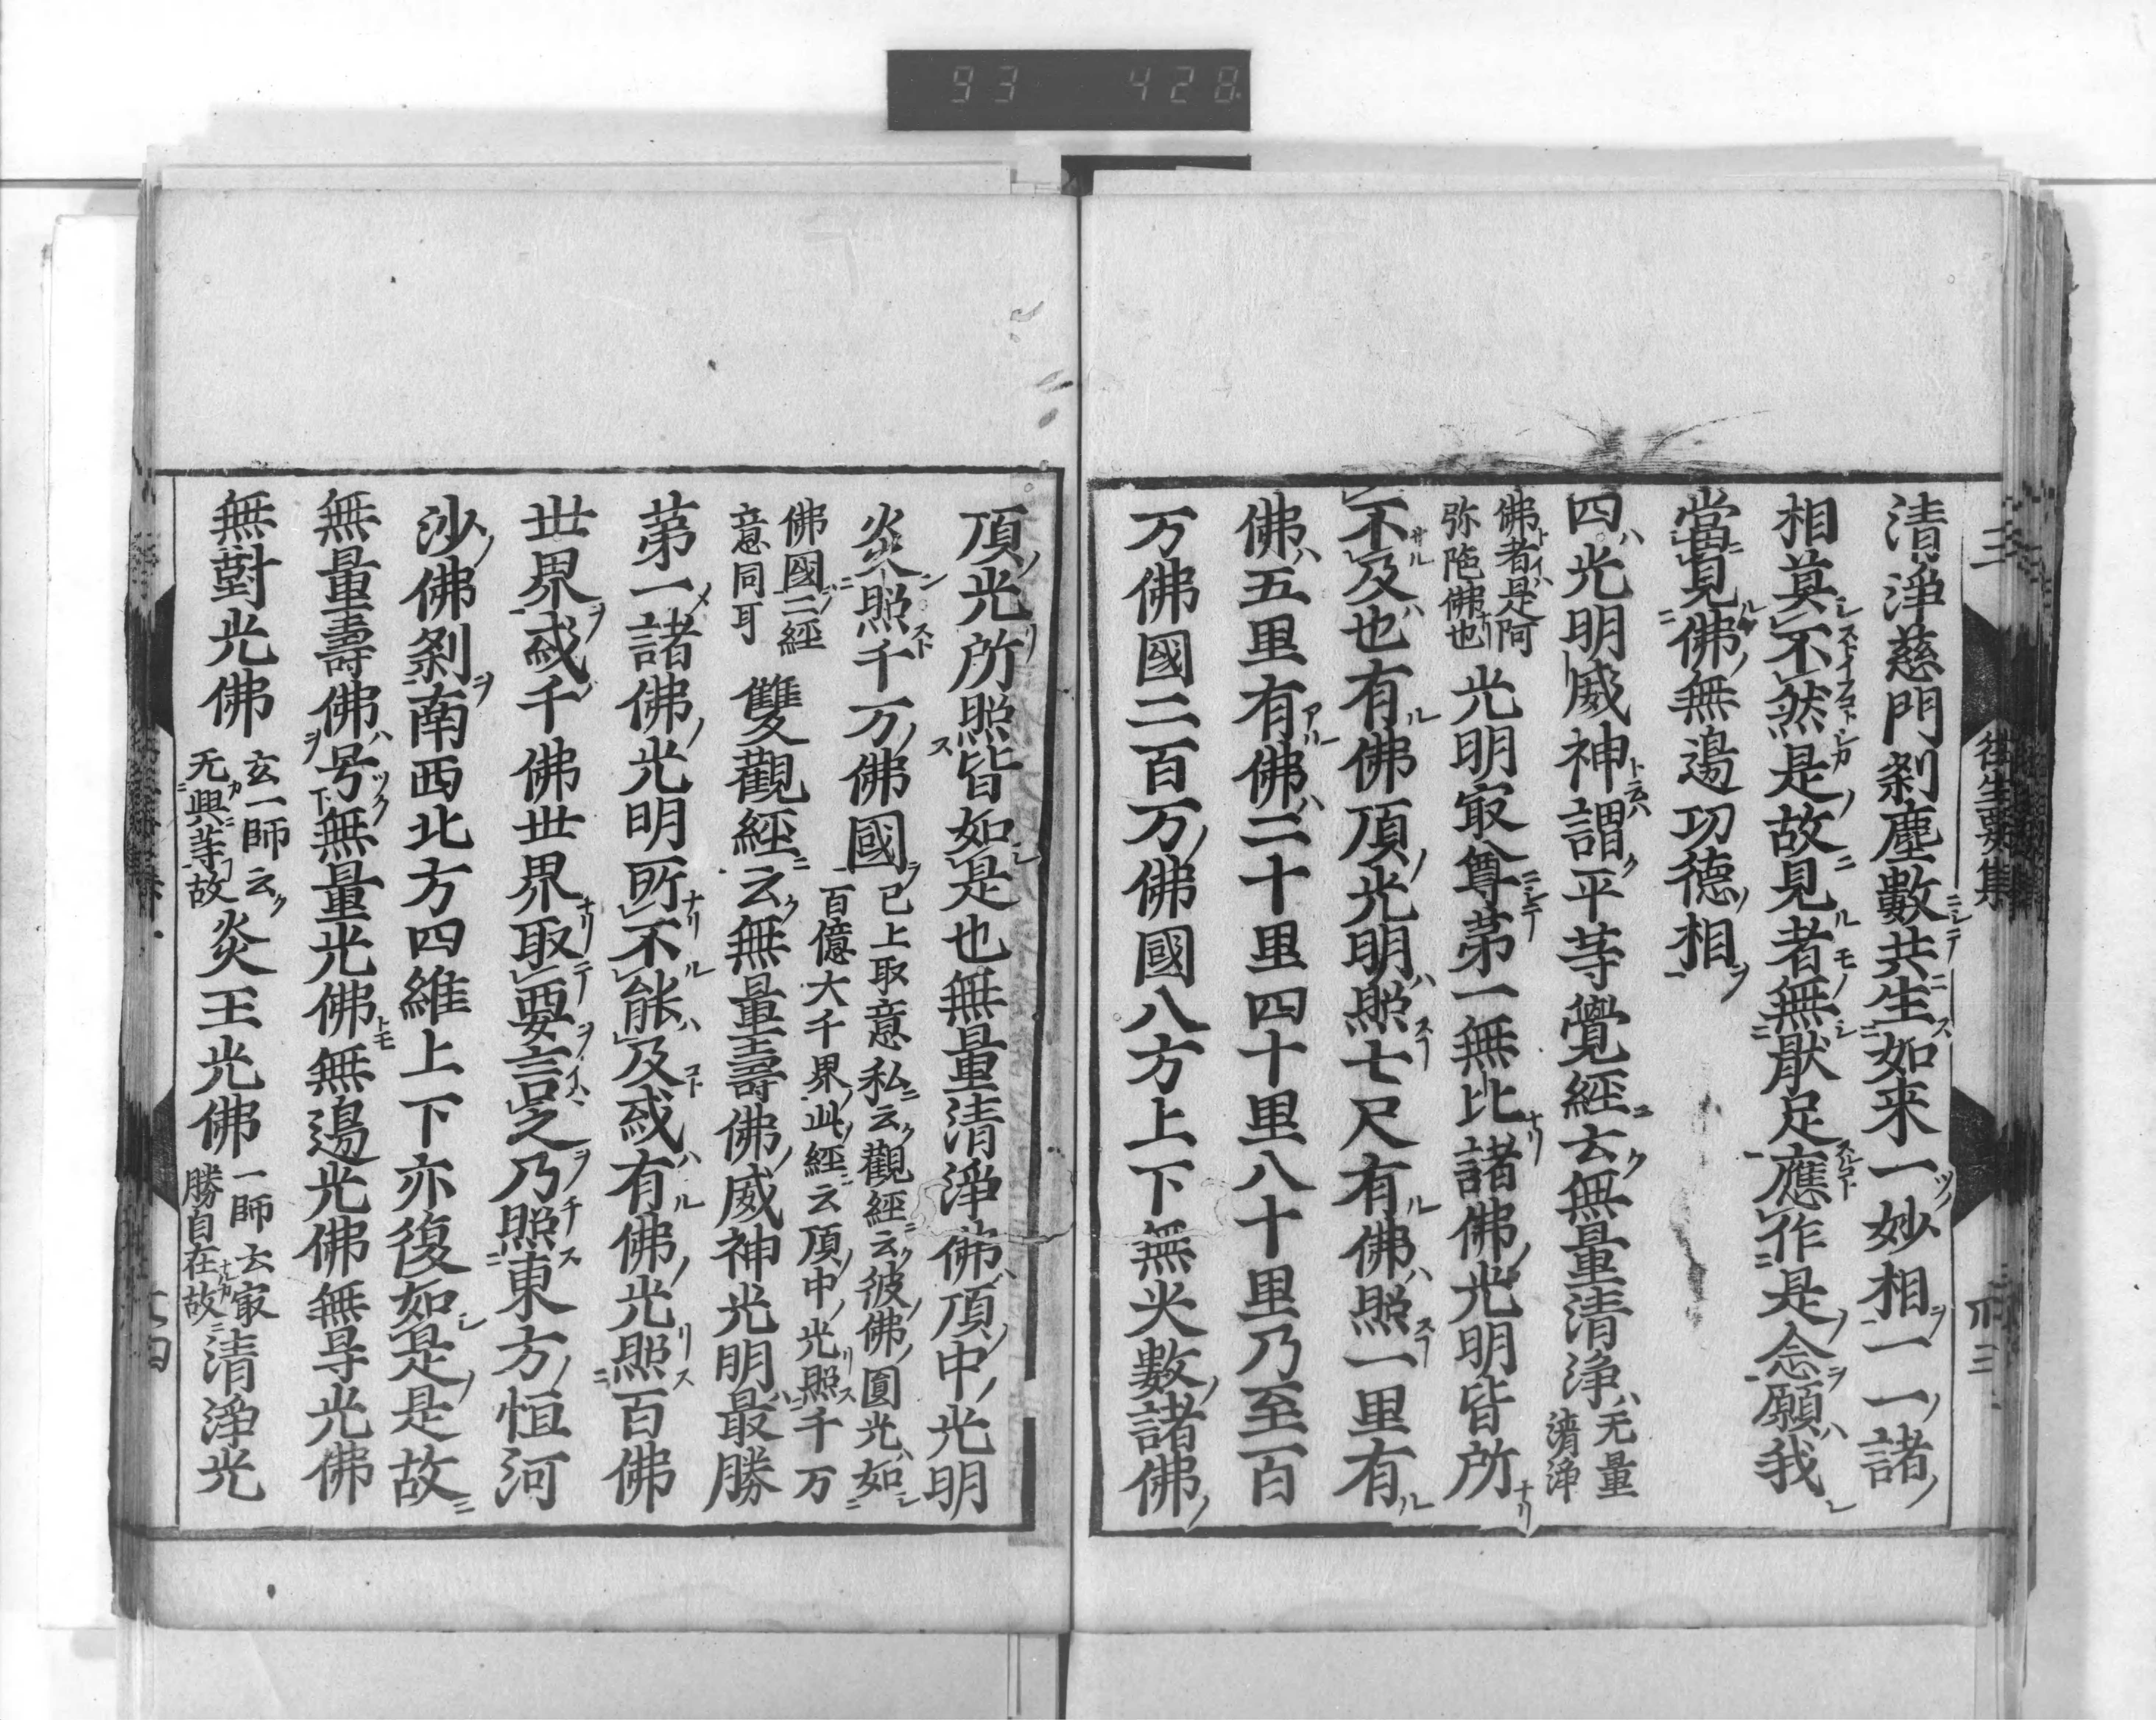 93 428
清淨慈門刹塵數共生如来一妙相一一諸
相莫不然是故見者無猒足應作是念願我
當見佛無邊功德相
四光明威神謂平䓁覺經云無量清淨无量清淨
佛者是阿弥陁佛也光明㝡尊苐一無比諸佛光明皆所
不及也有佛頂光明照七尺有佛照一里有
佛五里有佛二十里四十里八十里乃至百
万佛國二百万佛國八方上下無央數諸佛
頂光所照皆如是也無量清淨佛頂中光明
炎照千万佛國已上取意私云觀經云彼佛圓光如百億大千界此經云頂中光照千万
佛國二經意同耳雙觀經云無量壽佛威神光明最勝
苐一諸佛光明所不能及或有佛光照百佛
世界或千佛世界取要言之乃照東方恒河
沙佛刹南西北方四維上下亦復如是是故
無量壽佛号無量光佛無邊光佛無㝵光佛
無對光佛玄一師云无與䓁故炎王光佛一師云㝡勝自在故清淨光